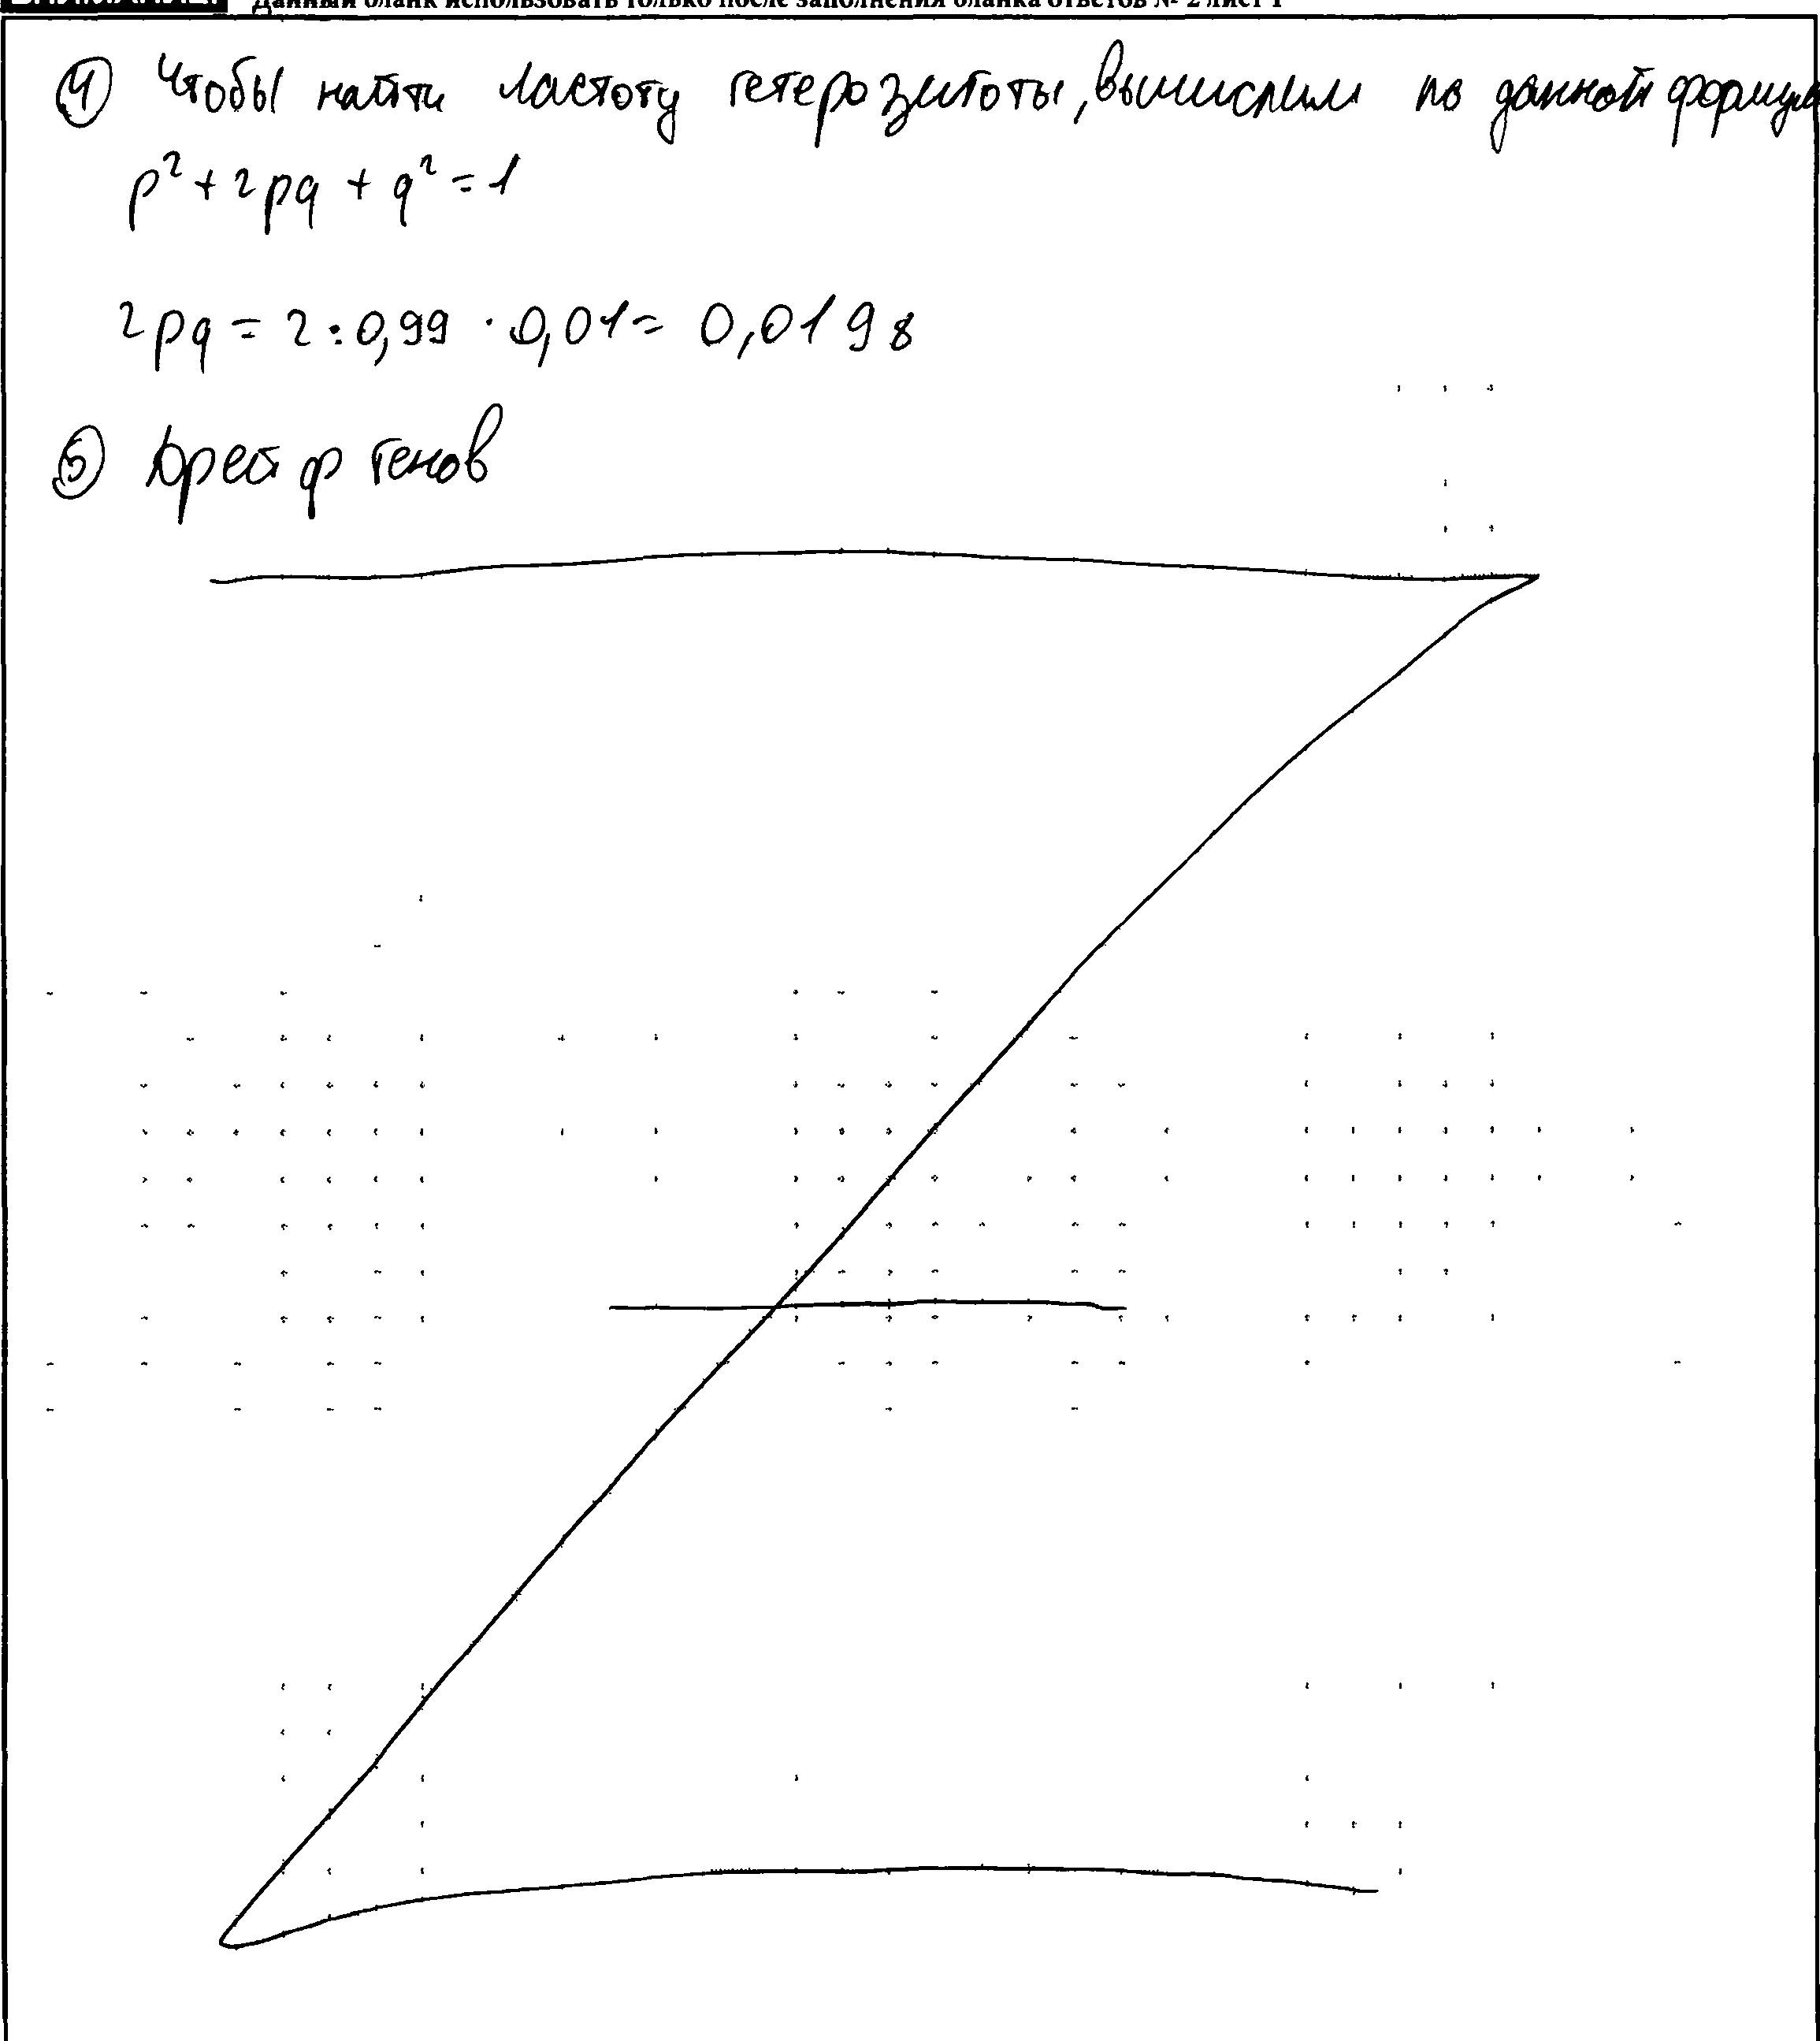 Данный бланк использовать только после заполнения бланка ответов № 2 лист 1
④ Чтобы найти частоту гетерозиготы, вычислим по данной формул
p² + 2pq + q² = 1
2pq = 2 · 0,99 · 0,01 = 0,0198
⑤ Дрейф генов